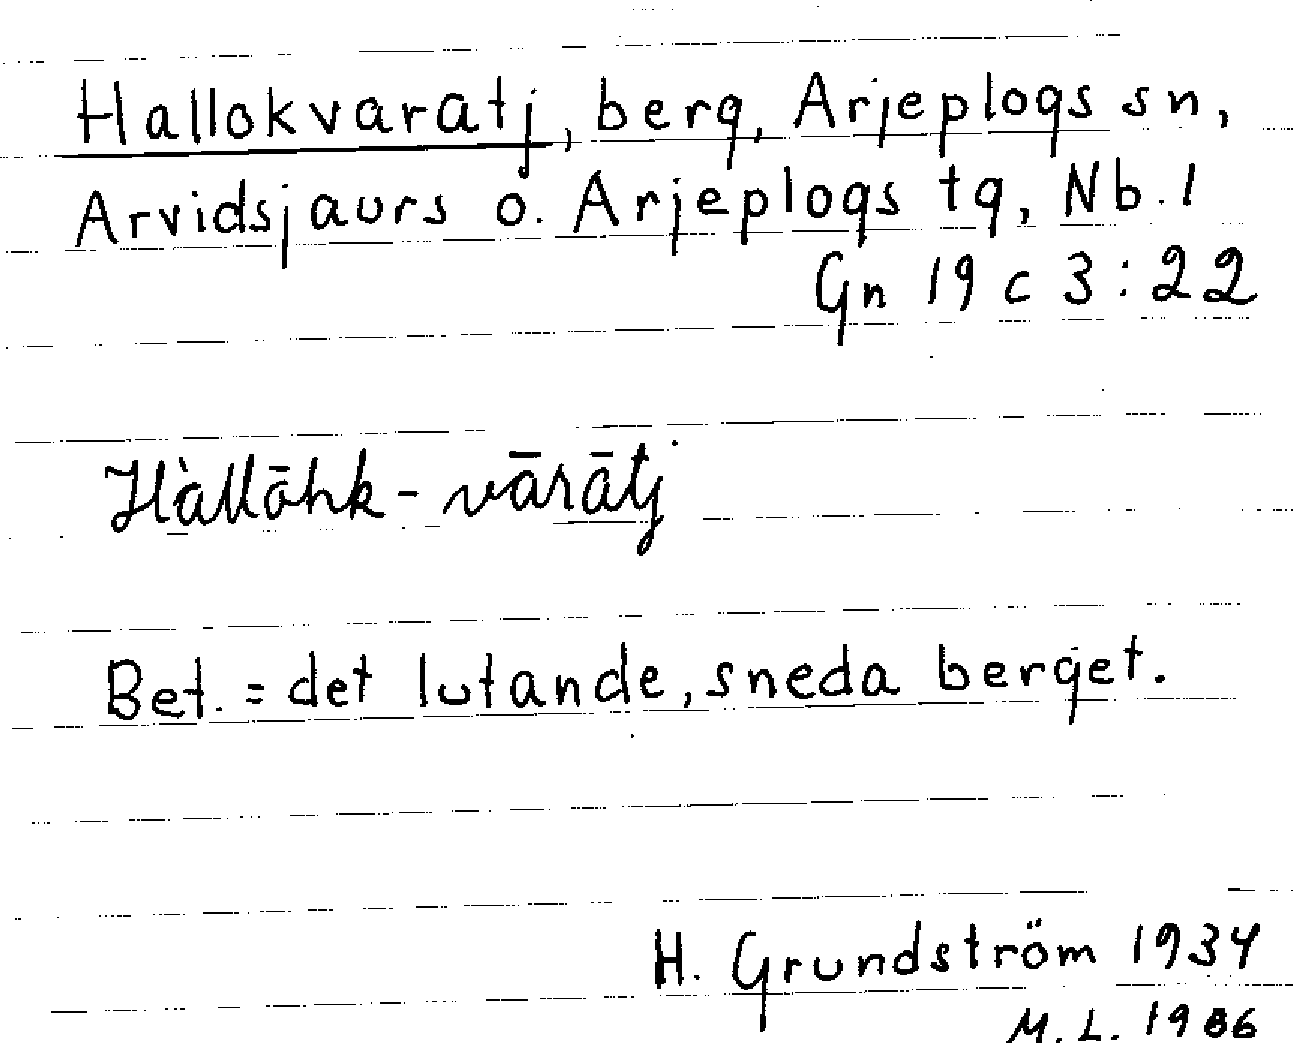 Hallokvaratj, berg, Arjeplogs sn,
Arvidsjaurs o. Arjeplogs tg, Nb. l
Gn 19 c 3:22
Hàllōhk-vārātj
Bet. = det lutande, sneda berget.
H. Grundström 1934
M. L. 1986